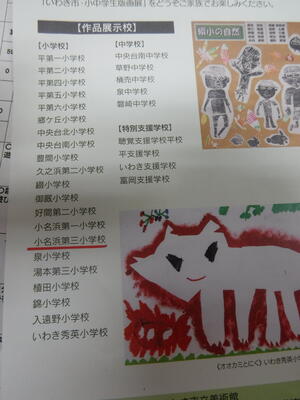 「いわき市・小中学生版画展」をどうぞご家族でお楽しみください。
【作品展示校】
[小学校]
平第一小学校
平第二小学校
平第四小学校
平第五小学校
平第六小学校
郷ケ丘小学校
中央台北小学校
中央台南小学校
豊間小学校
久之浜第二小学校
綴小学校
御厩小学校
好間第二小学校
小名浜第一小学校
小名浜第三小学校
泉小学校
湯本第三小学校
植田小学校
錦小学校
入遠野小学校
いわき秀英小学校
[中学校]
中央台南中学校
草野中学校
植田中学校
泉中学校
磐崎中学校
[特別支援学校]
聴覚支援学校平校
平支援学校
いわき支援学校
富岡支援学校
綴小の自然
《オオカミとにく》いわき秀英小
市立美術館